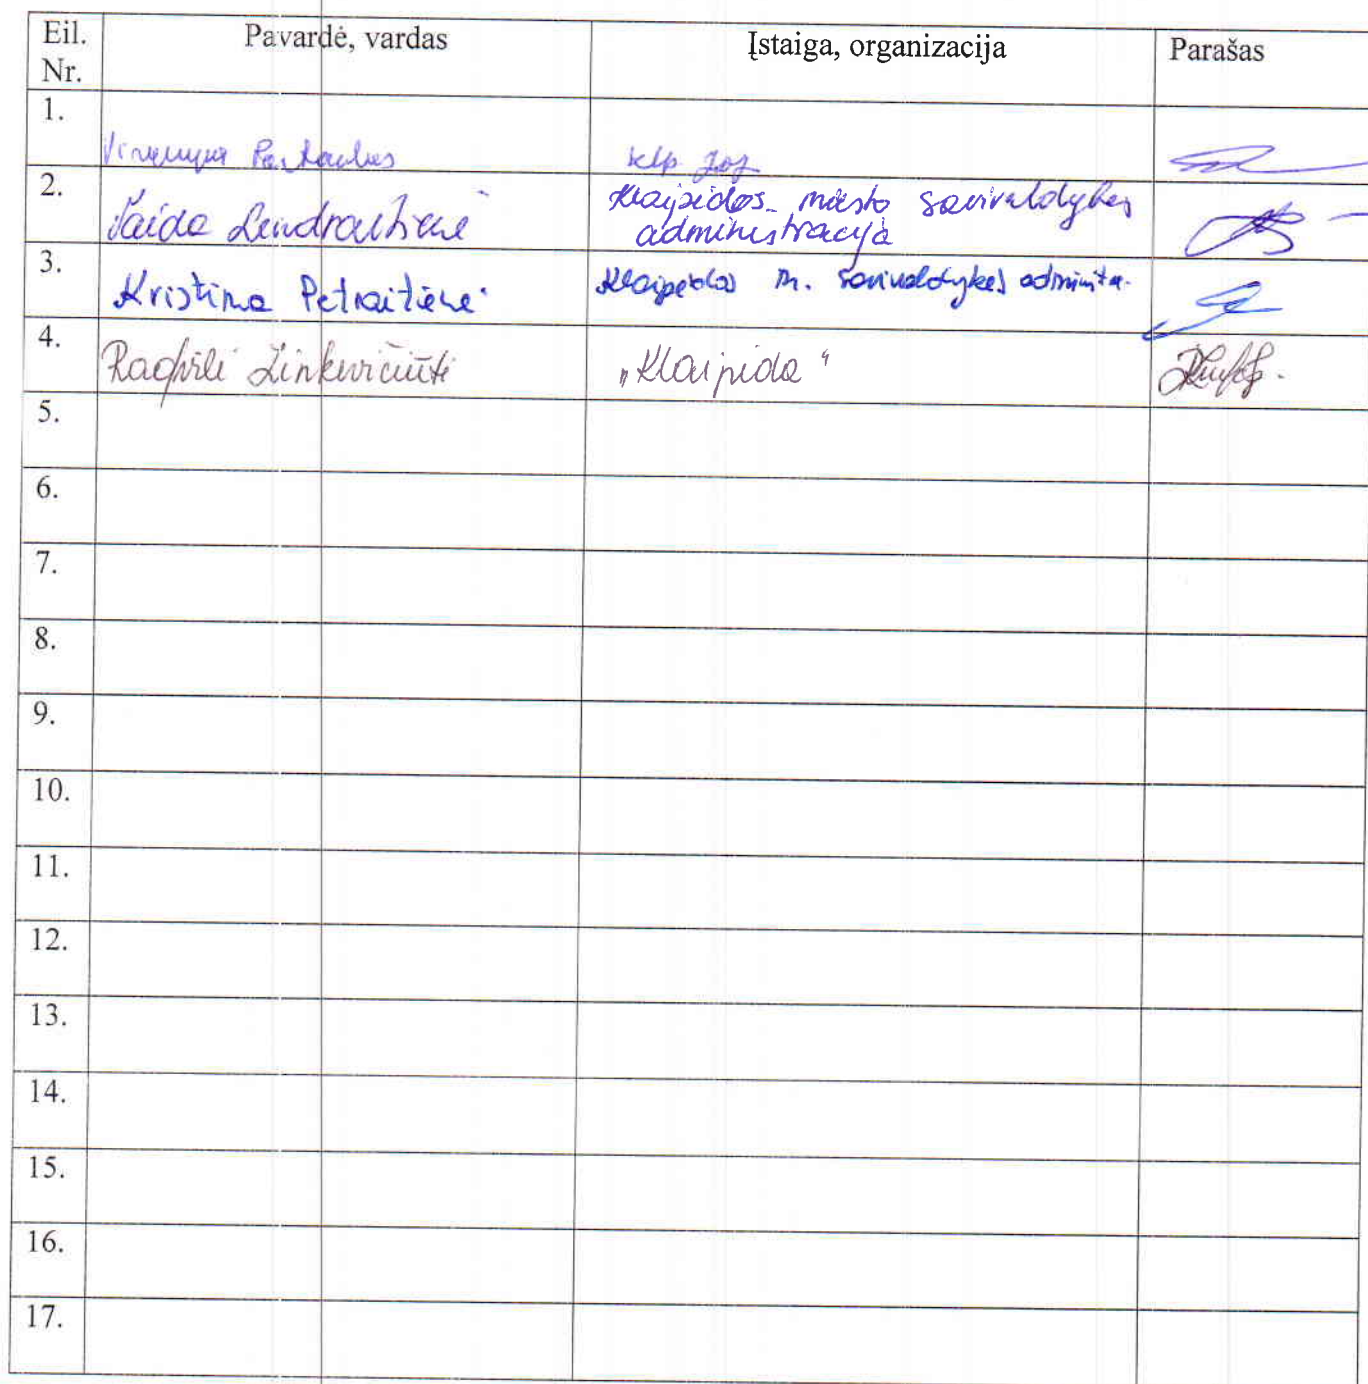 Eil. Nr. Pavardė, vardas Įstaiga, organizacija Parašas
1. klp.
2. Lendraitienė Klaipėdos miesto savivaldybės
administracija
3. Kristina Petraitienė Klaipėdos m. savivaldybės administr.
4. Ragnilė Linkevičiūtė „Klaipėda“
5.
6.
7.
8.
9.
10.
11.
12.
13.
14.
15.
16.
17.